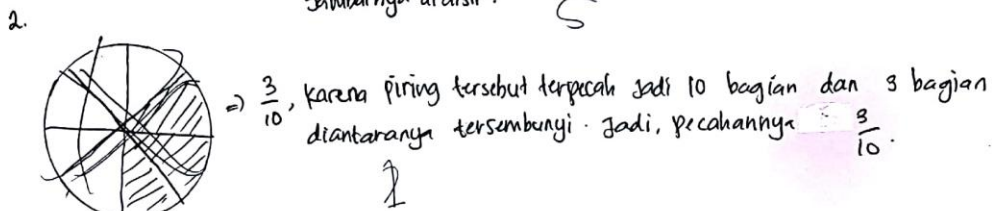 2.
=) 3/10, Karena piring tersebut terpecah jadi 10 bagian dan 3 bagian
diantaranya tersembunyi. Jadi, pecahannya 3/10.
1